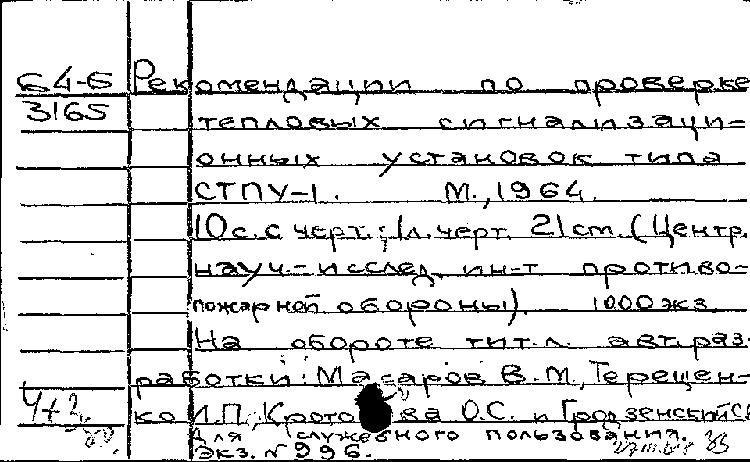 64-6
3165
Рекомендации по проверке
тепловых сигнализаци-
онных установок типа
СТПУ-1. М., 1964.
10 с. с черт.; 1 л. черт. 21 см. (Центр.
науч.-исслед. ин-т противо-
пожарной обороны). 1000 экз.
На обороте тит. л. авт. раз-
работки: Масаров В.М., Терещен-
ко И.П., О.С. и
Для служебного пользования.
Экз. № 996.